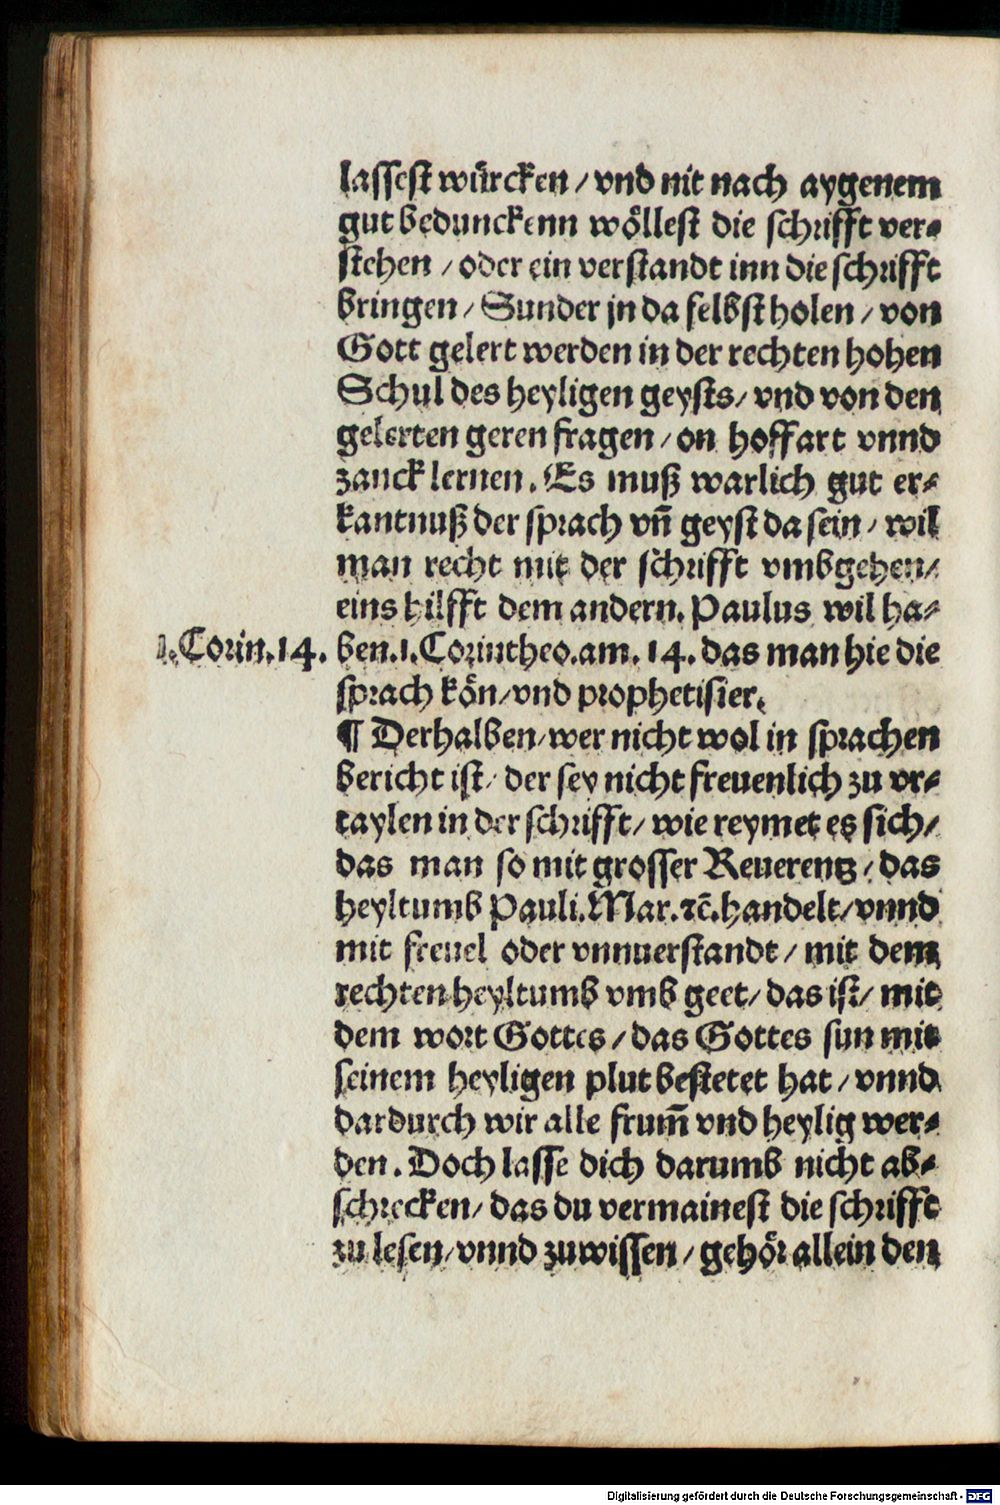 lassest würcken / vnd nit nach aygenem
gut bedunckenn wöllest die schrifft ver⸗
stehen / oder ein verstandt inn die schrifft
bringen / Sunder jn da selbst holen / von
Gott gelert werden in der rechten hohen
Schul des heyligen geysts / vnd von den
gelerten geren fragen / on hoffart vnnd
zanck lernen. Es muß warlich gut er⸗
kantnuß der sprach vñ geyst da sein / wil
man recht mit der schrifft vmbgehen /
eins hilfft dem andern. Paulus wil ha⸗
1. Corin. 14. ben. 1. Corintheo. am. 14. das man hie die
sprach kön / vnd prophetisier.
¶ Derhalben / wer nicht wol in sprachen
bericht ist / der sey nicht freuenlich zu vr⸗
taylen in der schrifft / wie reymet es sich /
das man so mit grosser Reuerentz / das
heyltumb Pauli. Mar. ꝛc̄. handelt / vnnd
mit freuel oder vnnuerstandt / mit dem
rechten heyltumb vmb geet / das ist / mit
dem wort Gottes / das Gottes sun mit
seinem heyligen plut bestetet hat / vnnd
dardurch wir alle frum̄ vnd heylig wer⸗
den. Doch lasse dich darumb nicht ab⸗
schrecken / das du vermainest die schrifft
zu lesen / vnnd zuwissen / gehör allein den
Digitalisierung gefördert durch die Deutsche Forschungsgemeinschaft - DFG